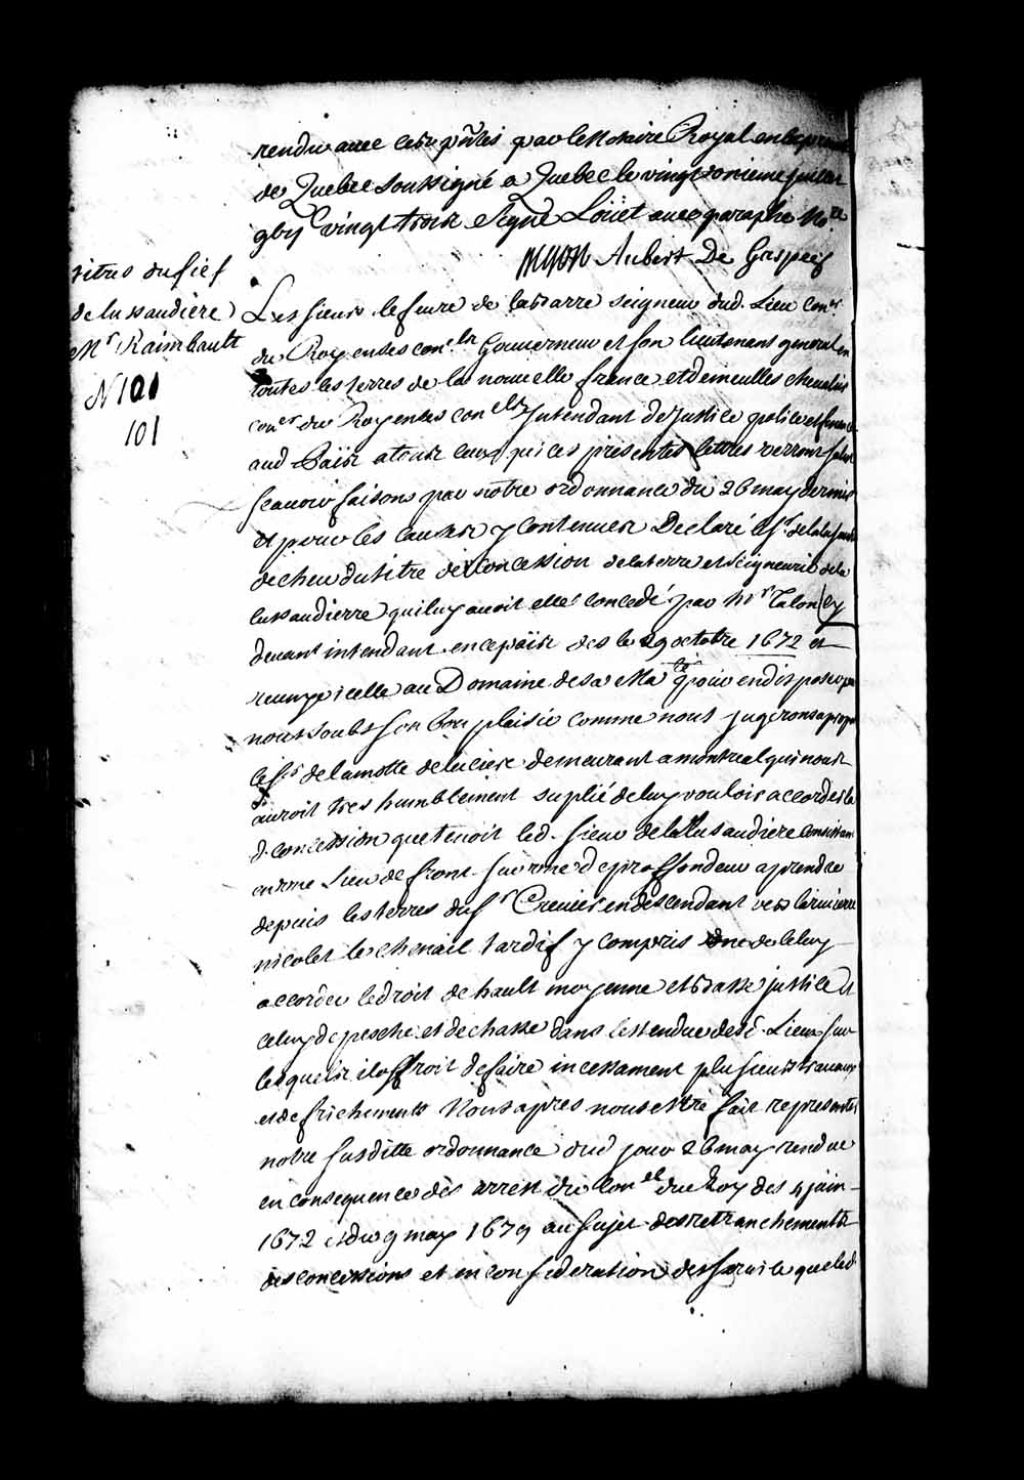 rendue avec ces pñtes par le Notaire Royal en la
de Quebec soussigné a Quebec le vingt onieme juillet
gbij vingt trois Signé Loüet avec paraphe No.re
Aubert De Gaspeis
titres du fief
de lussaudiere
Mr Raimbault
N 101
101
Les sieurs lefevre de labarre seigneur dud. Lieu con.er
du Roy en ses con.ls Gouverneur et son lieutenant general en
toutes les terres de la nouvelle france et demeulles chevalier
con.er du Roy en ses con.els Intendant de justice police et finance
aud Païs a tous ceux qui ces presentes lettres verront salut
scavoir faisons par nôtre ordonnance du 26 may dernier
et pour les causes y contenues Declaré le Sr. de la
decheu du titre de Concession de la terre et seigneurie de la
lussaudierre qui luy avoit esté concedé par Mr Talon cy
devant intendant en ce païs des le 29 octobre 1672 et
reuny icelle au Domaine de sa Ma.té pour en disposer par
nous soubs son bon plaisir comme nous jugerons a propos
le Sr. de lamotte de luciere demeurant a montreal qui nous
auroit tres humblement suplié de luy vouloir accorder la
d. concession que tenoit led. sieur de la lussaudiere consistant
en une Lieue de front sur une de proffondeur a prendre
depuis les terres du sr Crevier en descendant vers la riviere
nicolet le chenail tardif y compris de luy
accorder le droit de hault moyenne et basse justice et
celuy de pesche et de chasse dans lestendue desd. Lieux sur
lesquels il offroit de faire incessament plusieurs travaux
et defrichements Nous apres nous estre fait representer
notre susditte ordonnance dud jour 26 may rendue
en consequence des arrest du Con.el du Roy des 4 juin
1672 et du 9 may 1679 au sujet des retranchements
des concessions et en consideration des services que led.